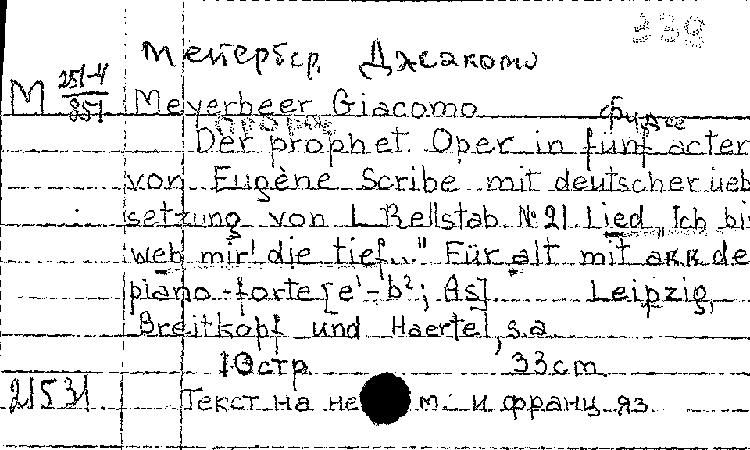 338
Мейербер, Джакомо
M 251-4/851 Meyerbeer Giacomo
Der prophet. Oper in fünf acten
von Eugène Scribe mit deutscher ueb
setzung von L Rellstab. № 21. Lied „Ich bi
weh mir! die tief..." Für alt mit акк de
piano-forte [e¹-b²; As]. Leipzig,
Breitkopf und Haertel, s.a.
10 стр. 33 cm.
21531 Текст на не м. и франц. яз.